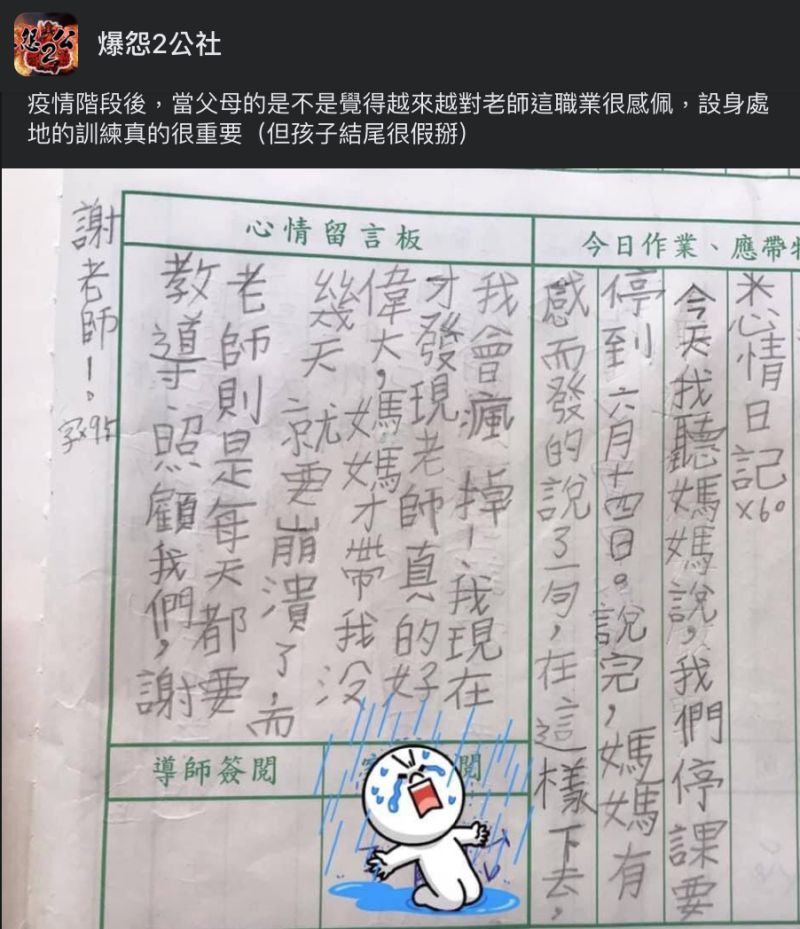 爆怨2公社
疫情階段後，當父母的是不是覺得越來越對老師這職業很感佩，設身處
地的訓練真的很重要（但孩子結尾很假掰）
今日作業、應帶
心情日記
x60
今天我聽媽媽說，我們停課要
停到六月十四日。說完，媽媽有
感而發的說了一句，在這樣下去，
心情留言板
我會瘋掉！、我現在
才發現老師真的好
偉大，媽媽才帶我沒
幾天就要崩潰了，而
老師則是每天都要
教導、照顧我們，謝
謝老師！。
字x95
導師簽閱
閱